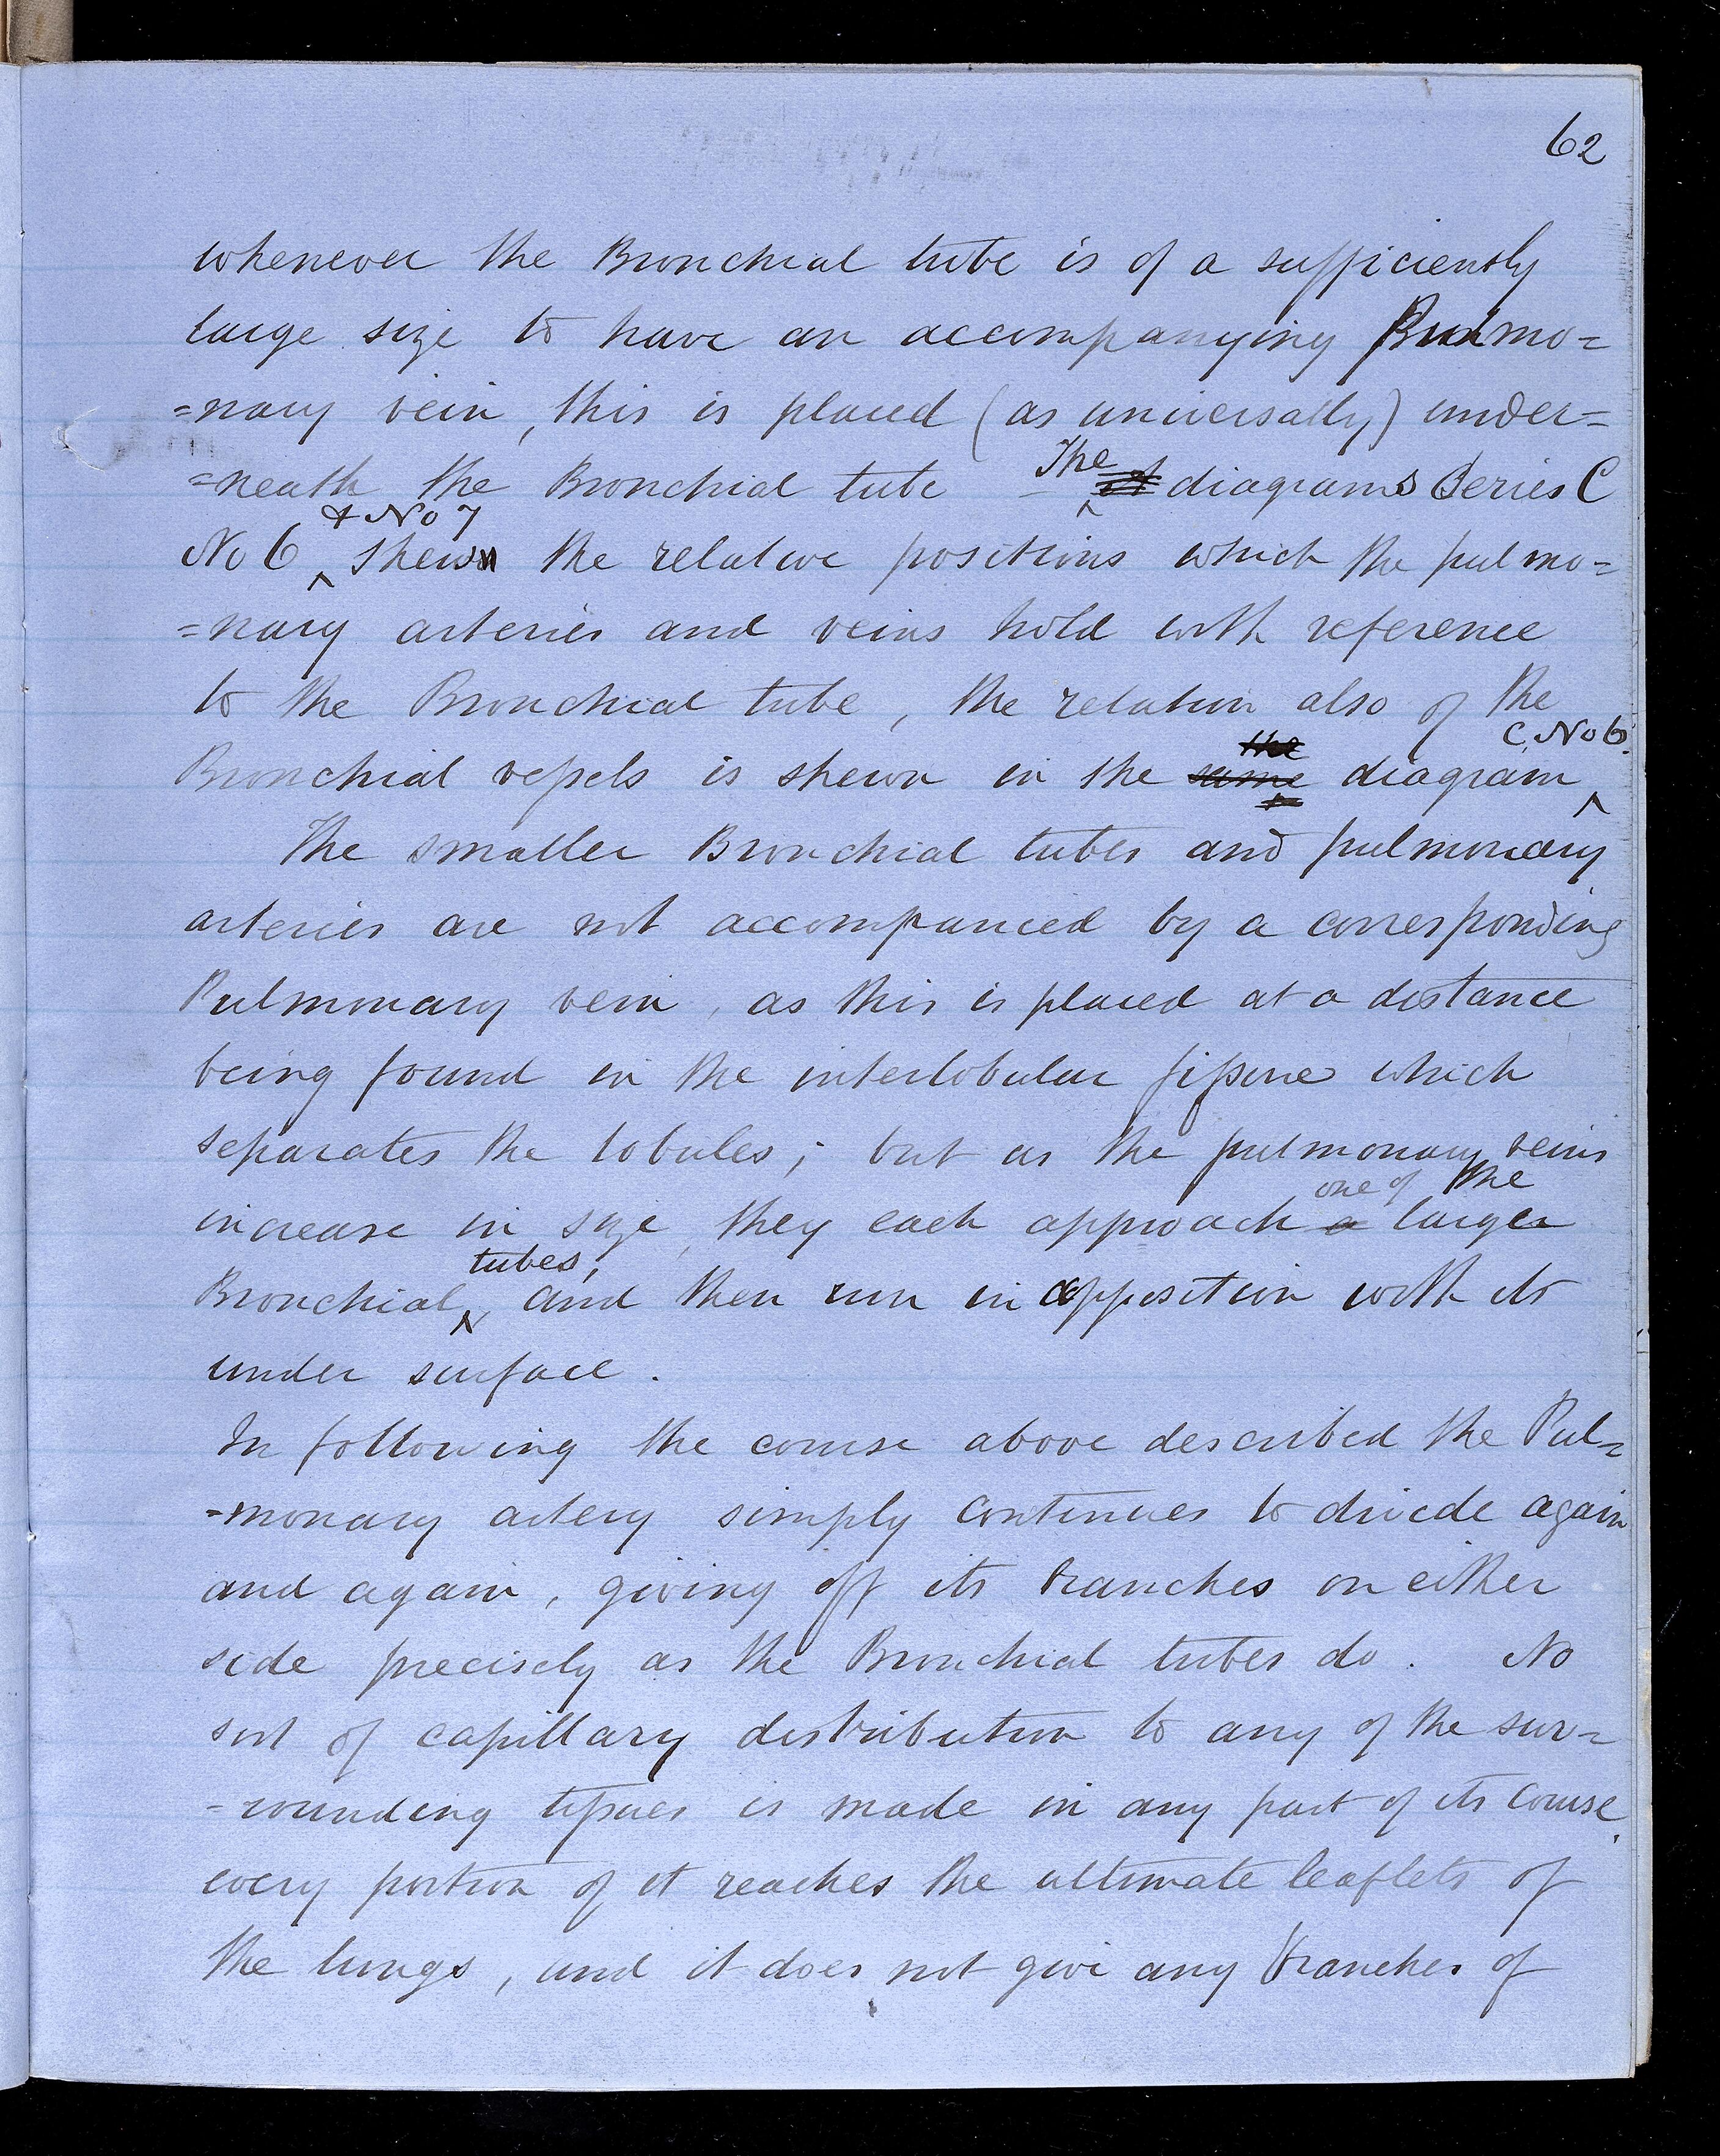 62
whenever the Bronchial tube is of a sufficiently
large size to have an accompanying Pulmo=
=nary vein, this is placed (as universally) under=
=neath the Bronchial tube — The diagrams Series C
No 6 & No 7 shew the relative positions which the pulmo=
=nary arteries and veins hold with reference
to the Bronchial tube, the relation also of the
Bronchial vessels is shewn in the ~~same~~ ~~the~~ diagram C. No 6.
The smaller Bronchial tubes and pulmonary
arteries are not accompanied by a corresponding
Pulmonary vein, as this is placed at a distance
being found in the interlobular fissure which
separates the lobules; but as the pulmonary veins
increase in size, they each approach ~~a~~ one of the larger
Bronchial tubes, and then run in apposition with its
under surface.
In following the course above described the Pul=
=monary artery simply continues to divide again
and again, giving off its branches on either
side precisely as the Bronchial tubes do. No
sort of capillary distribution to any of the sur=
=rounding tissues is made in any part of its course,
every portion of it reaches the ultimate leaflets of
the lungs, and it does not give any branches of